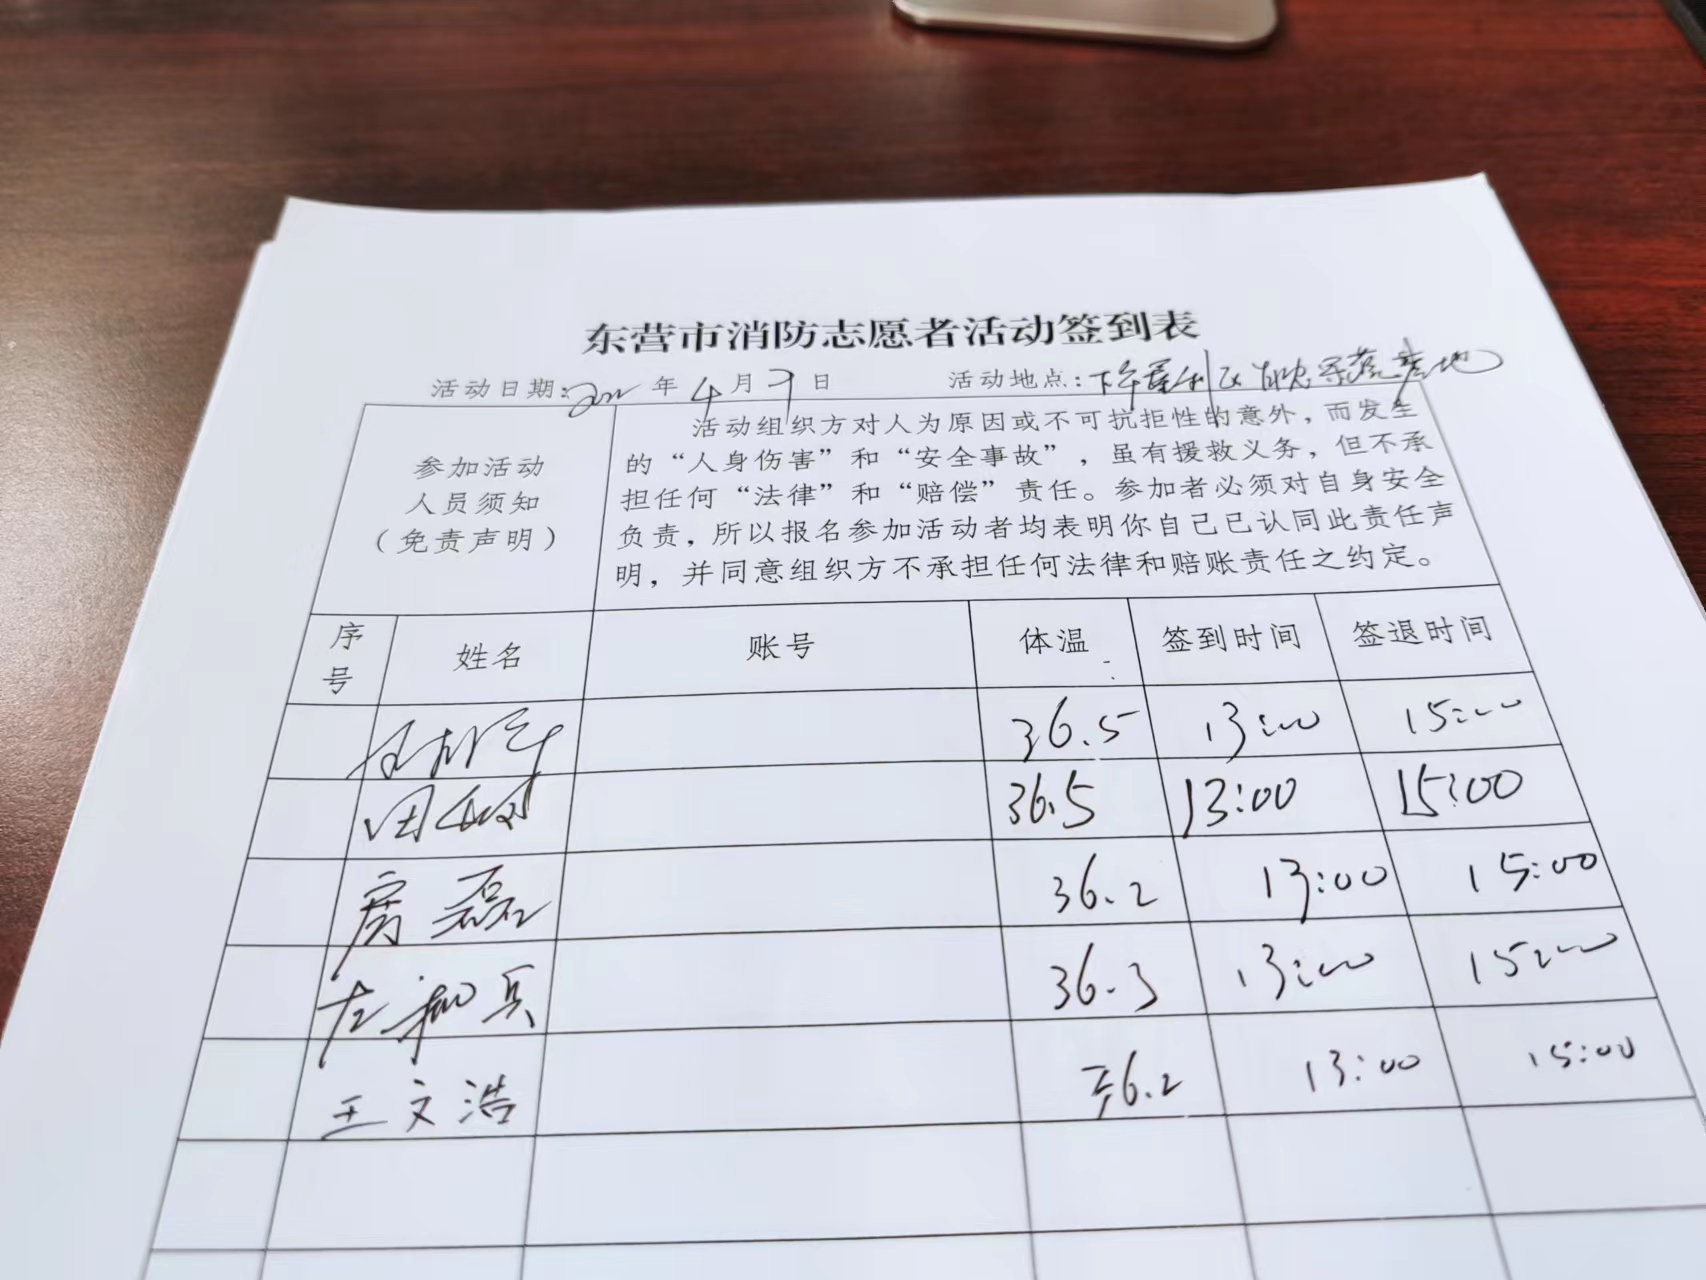 东营市消防志愿者活动签到表
活动日期: 年 4 月 9 日 活动地点: 基地
参加活动人员须知（免责声明）
活动组织方对人为原因或不可抗拒性的意外，而发生
的“人身伤害”和“安全事故”，虽有援救义务，但不承
担任何“法律”和“赔偿”责任。参加者必须对自身安全
负责，所以报名参加活动者均表明你自己已认同此责任声
明，并同意组织方不承担任何法律和赔账责任之约定。
序号 姓名 账号 体温 签到时间 签退时间
36.5 13:00 15:00
36.5 13:00 15:00
房磊 36.2 13:00 15:00
36.3 13:00 15:00
王文浩 36.2 13:00 15:00